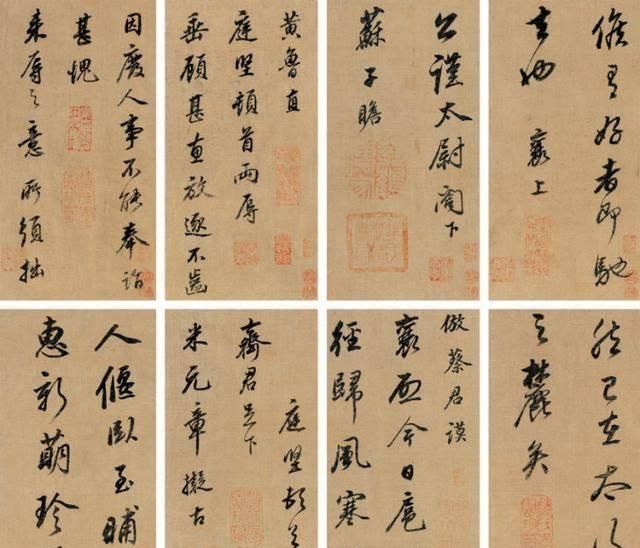 候有好者即馳
去也 襄上
公謹太尉閤下
蘇子瞻
黃魯直
庭堅頓首兩辱
垂顧甚惠放逐不齒
因廢人事不能奉詣
甚愧
來辱之意所須拙
然已在太行
之麓矣
倣蔡君謨
襄啟今日扈
經歸風寒
庭堅頓首
齊君足下
米元章擬古
人偃臥至晡
惠新萌珍